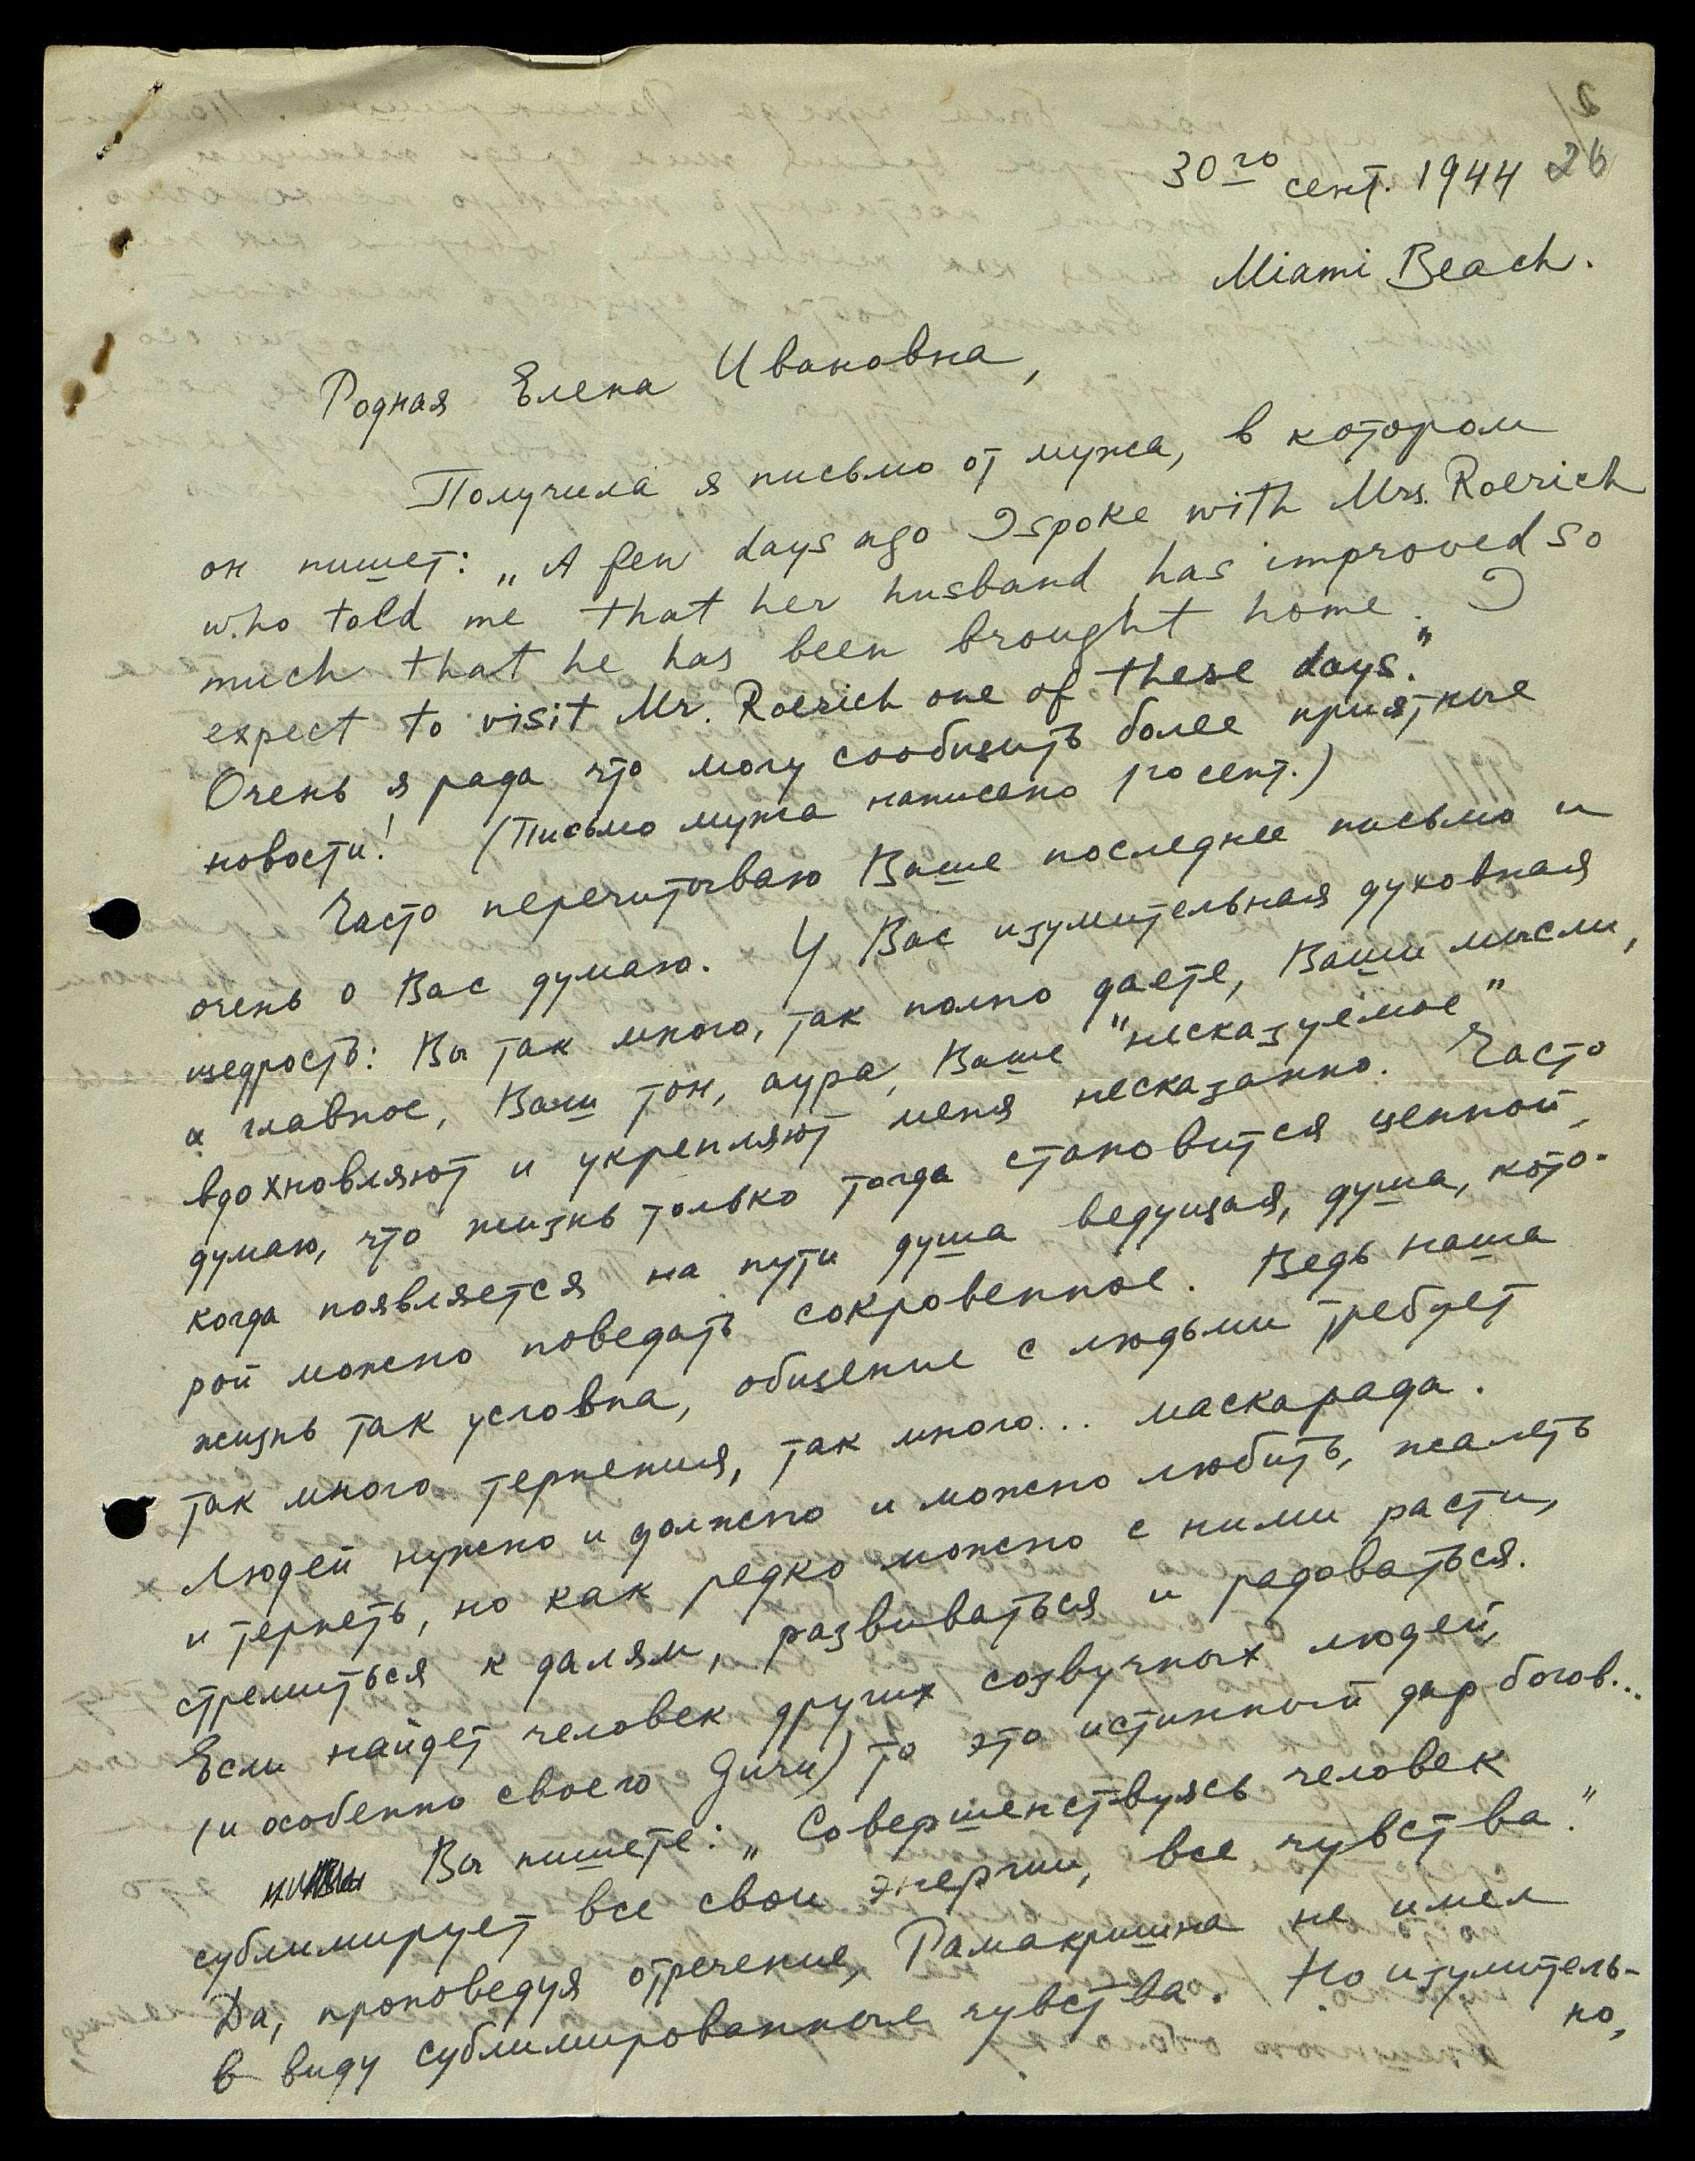 2/
26
30го сент. 1944
Miami Beach.
Родная Елена Ивановна,
Получила я письмо от мужа, в котором
он пишет: „A few days ago I spoke with Mrs. Roerich
who told me that her husband has improved so
much that he has been brought home. I
expect to visit Mr. Roerich one of these days."
Очень я рада что могу сообщить более приятные
новости! (Письмо мужа написано 1го сент.)
Часто перечитываю Ваше последнее письмо и
очень о Вас думаю. У Вас изумительная духовная
щедрость: Вы так много, так полно даете, Ваши мысли,
а главное, Ваш тон, аура, Ваше "несказуемое"
вдохновляют и укрепляют меня несказанно. Часто
думаю, что жизнь только тогда становится ценной,
когда появляется на пути душа ведущая, душа, кото-
рой можно поведать сокровенное. Ведь наша
жизнь так условна, общение с людьми требует
так много терпения, так много... маскарада.
Людей нужно и должно и можно любить, жалеть
и терпеть, но как редко можно с ними расти,
стремиться к далям, развиваться и радоваться.
Если найдет человек других созвучных людей,
(и особенно своего Guru) то это истинный дар богов...
Вы пишете: „Совершенствуясь человек
сублимирует все свои энергии, все чувства."
Да, проповедуя отречение, Рамакришна не имел
в виду сублимированные чувства. Но изумитель-
но,